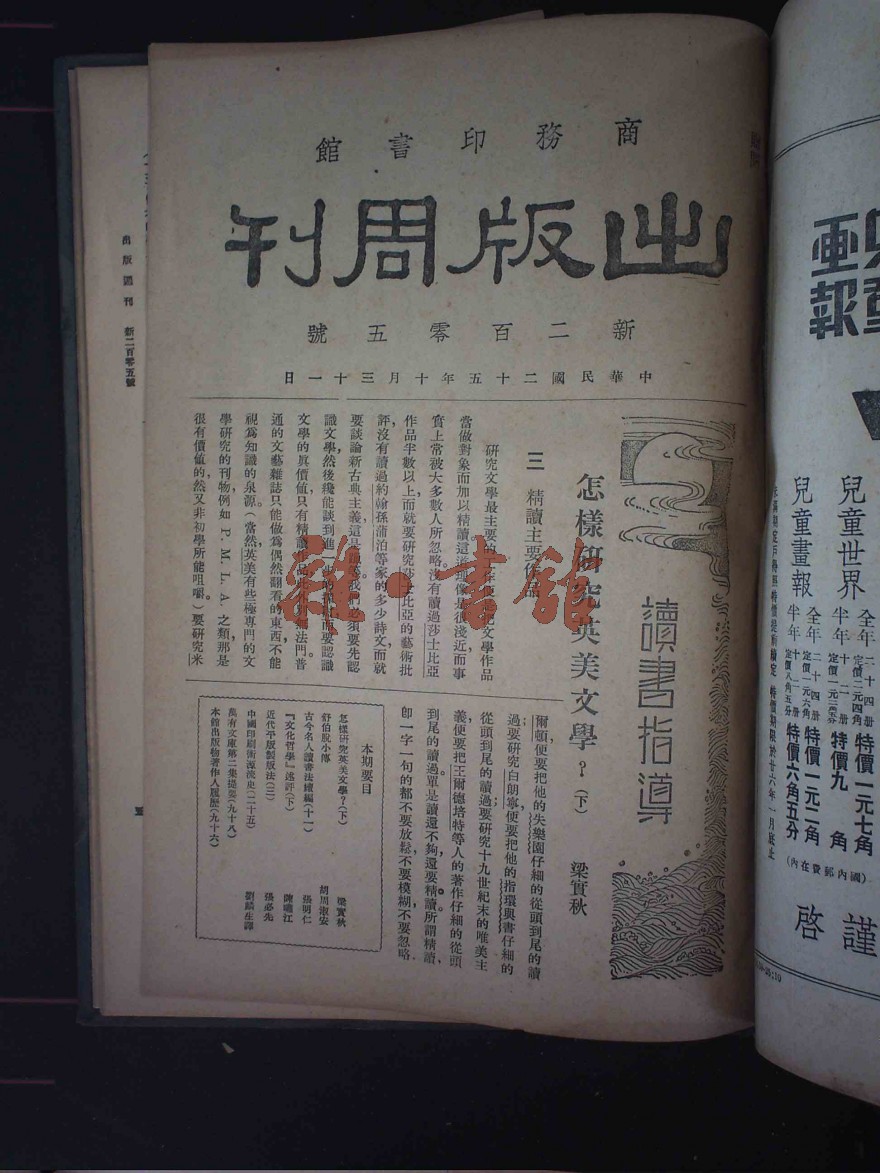 商務印書館
出版周刊
新二百零五號
中華民國二十五年十月三十一日
讀書指導
怎樣研究英美文學？(下)
梁實秋
三 精讀主要作品
研究文學最主要的
當做對象而加以精讀這道理像是很淺近而事
實上常被大多數人所忽略沒有讀過莎士比亞
作品半數以上而就要研究莎士比亞的藝術批
評沒有讀過約翰孫蒲泊等家的多少詩文而就
要談論新古典主義這是
我們必須要先認
識文學然後纔能談到進一步的
而要認識
文學的眞價値只有精讀作品此外別無法門。普
通的文藝雜誌只能做爲偶然翻看的東西不能
視爲知識的泉源。(當然，英美有些極專門的文
學研究的刊物，例如P. M. L. A. 之類，那是
很有價値的，然又非初學所能咀嚼。)要研究米
爾頓，便要把他的失樂園仔細的從頭到尾的讀
過；要研究白朗寧，便要把他的指環與書仔細的
從頭到尾的讀過；要研究十九世紀末的唯美主
義，便要把王爾德培特等人的著作仔細的從頭
到尾的讀過。單是讀還不夠，還要精讀。所謂精讀，
卽一字一句的都不要放鬆，不要模糊，不要忽略
本期要目
怎樣研究英美文學？(下) 梁實秋
舒伯脫小傳 胡周淑安
古今名人讀書法續編(十一) 張明仁
『文化哲學』述評(下) 陳嘯江
近代平版製版法(三) 張必先
中國印刷術源流史(二十五) 劉麟生譯
萬有文庫第二集提要(九十八)
本館出版物著作人履歷(九十六)
出版週刊 新二百零五號
畫報
兒童世界
全年 二十四册 定價二元四角 特價一元七角
半年 十二册 特價九角
兒童畫報
全年 二十四册 定價一元六角 特價一元二角
半年 十二册 定價八角五分 特價六角五分
(國內郵費在內)
特價期限於廿六年一月底止
謹啓
雜·書館